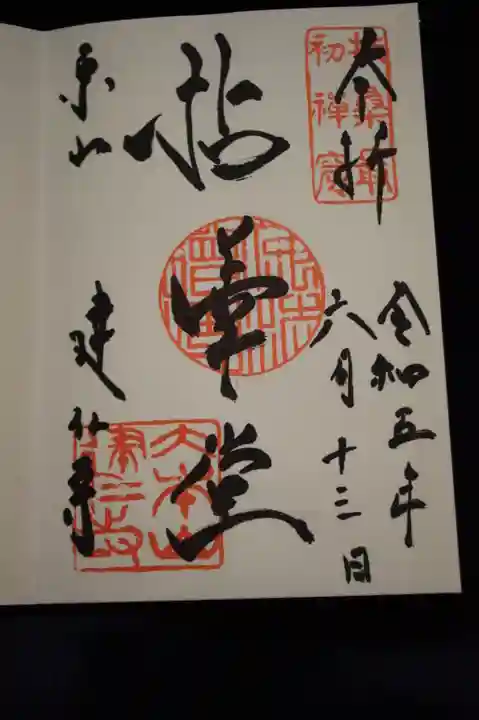 奉拝
扶桑最
初禅窟
令和五年
六月十三日
拈華堂
東山
建仁寺
大本山
建仁寺